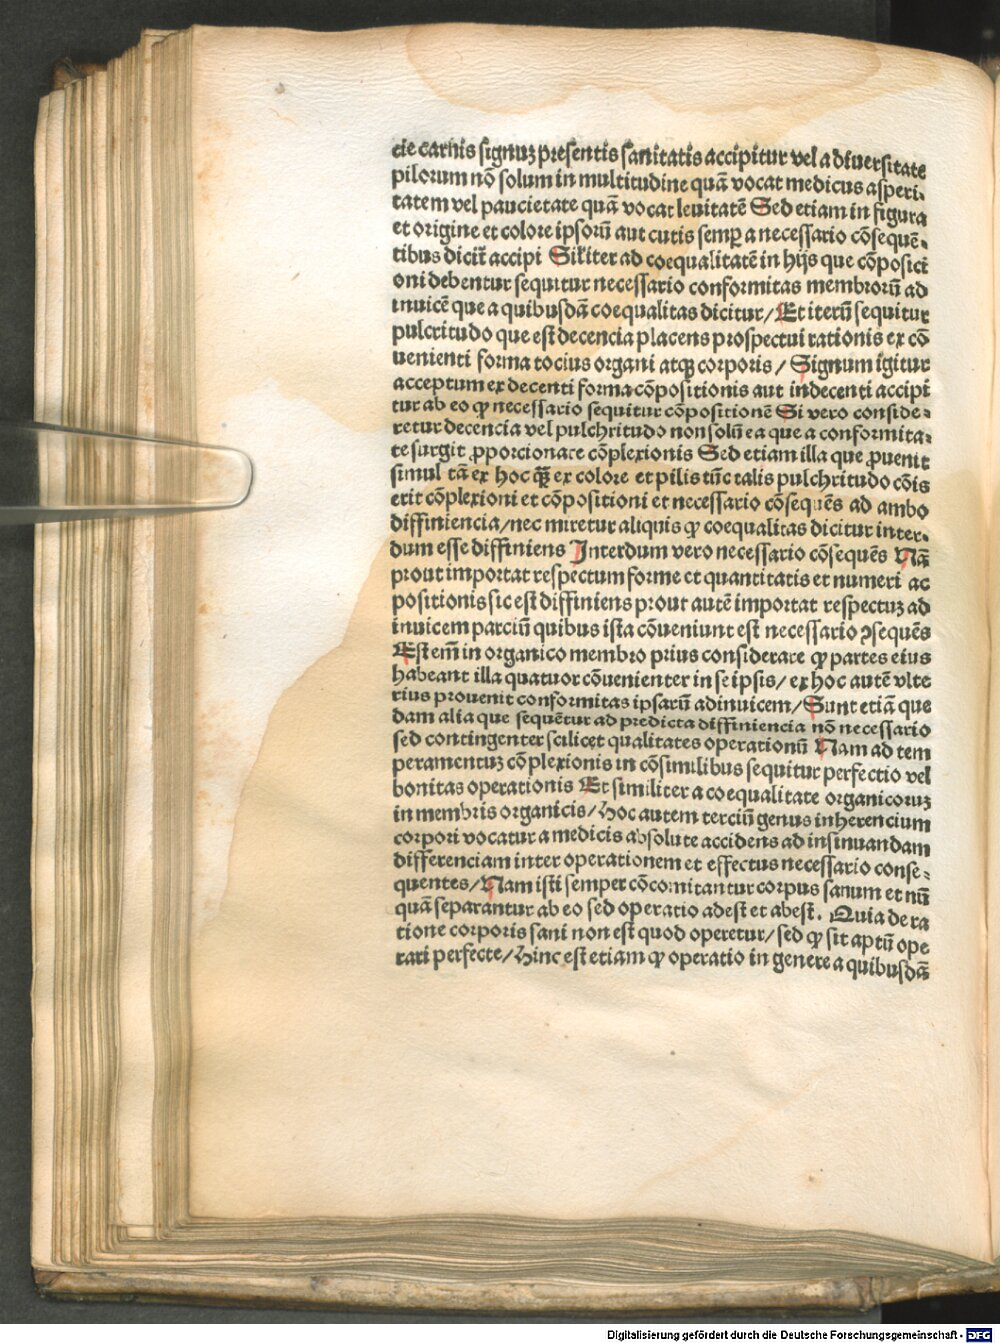 cie carnis signuꝫ presentis sanitatis accipitur vel a diuersitate
pilorum nō solum in multitudine quā vocat medicus asperi⸗
tatem vel paucietate quā vocat leuitatē Sed etiam in figura
et origine et colore ipsorū aut cutis semꝑ a necessario cōsequē⸗
tibus dicit̄ accipi Sil̄iter ad coequalitatē in hijs que cōpositi
oni debentur sequitur necessario conformitas membrorū ad
inuicē que a quibusdā coequalitas dicitur/ Et iterū sequitur
pulcritudo que est decencia placens prospectui rationis ex cō
uenienti forma tocius organi atqꝫ corporis/ Signum igitur
acceptum ex decenti forma cōpositionis aut indecenti accipi
tur ab eo ꝙ necessario sequitur cōpositionē Si vero conside⸗
retur decencia vel pulchritudo non solū ea que a conformita⸗
te surgit ꝓporcionate cōplexionis Sed etiam illa que ꝓuenit
simul tā ex hoc qꝫ̄ ex colore et pilis tūc talis pulchritudo cōis
erit cōplexioni et cōpositioni et necessario cōsequēs ad ambo
diffiniencia/ nec miretur aliquis ꝙ coequalitas dicitur inter⸗
dum esse diffiniens Interdum vero necessario cōsequēs Nā
prout importat respectum forme et quantitatis et numeri ac
positionis sic est diffiniens prout autē importat respectuꝫ ad
inuicem parciū quibus ista cōueniunt est necessario ↄsequēs
Est em̄ in organico membro prius considerare ꝙ partes eius
habeant illa quatuor cōuenienter in se ipsis/ ex hoc autē vlte
rius prouenit conformitas ipsarū adinuicem/ Sunt etiā que
dam alia que sequētur ad predicta diffiniencia nō necessario
sed contingenter scilicet qualitates operationū Nam ad tem
peramentuꝫ cōplexionis in cōsimilibus sequitur perfectio vel
bonitas operationis Et similiter a coequalitate organicoruꝫ
in membris organicis/ Hoc autem terciū genus inherencium
corpori vocatur a medicis absolute accidens ad insinuandam
differenciam inter operationem et effectus necessario conse⸗
quentes/ Nam isti semper cōcomitantur corpus sanum et nū
quā separantur ab eo sed operatio adest et abest. Quia de ra
tione corporis sani non est quod operetur/ sed ꝙ sit aptū ope
rari perfecte/ Hinc est etiam ꝙ operatio in genere a quibusdā
Digitalisierung gefördert durch die Deutsche Forschungsgemeinschaft - DFG